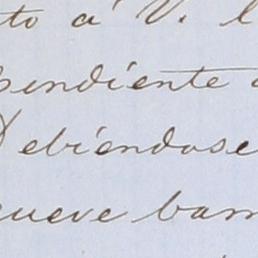 to á V. l
pendiente
Debiéndose
ueve bam